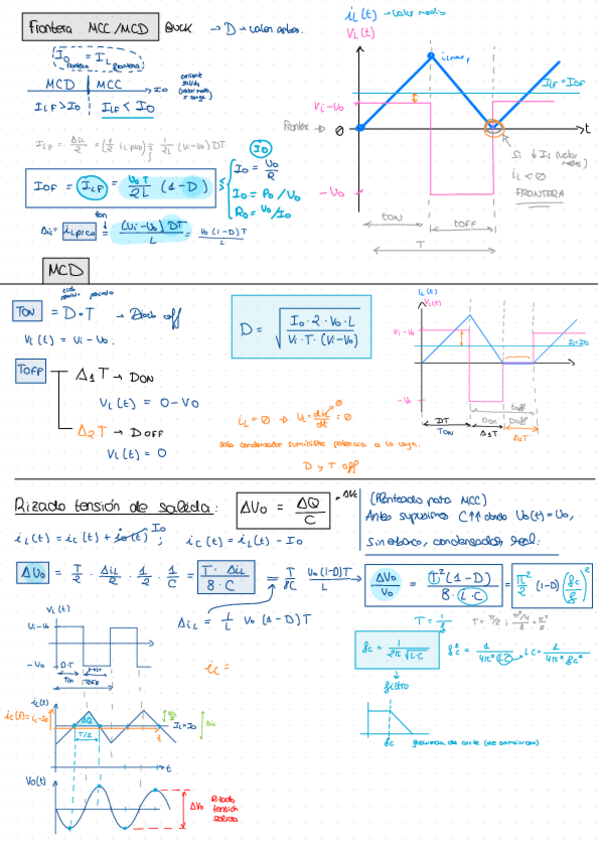 Frontera MCC/MCD BUCK → D → valor antes.
I_O frontera = I_L frontera
MCD MCC → I_O
I_LF > I_O I_LF < I_O
I_LF = ΔiL/2 = (1/2 i_L pico) = 1/2L (Vi-Vo) DT
I_OF = I_LF = VoT/2L (1-D)
I_O
I_O = Vo/R
I_O = Po/Vo
R_O = Vo/I_O
ton
Δi_L = i_L pico = (Vi-Vo) DT/L = Vo (1-D) T/L
i_L(t) → valor medio
V_L(t)
i_L max
I_LF = I_OF
Vi-Vo
Frontera → 0
t
-Vo
Si ↓ I_L (valor medio)
i_L < 0
FRONTERA
tON tOFF
T
MCD
TON = D·T → Diodo off
V_L(t) = Vi-Vo.
TOFF
Δ1T → DON
V_L(t) = 0-Vo
Δ2T → DOFF
V_L(t) = 0
D = √(I_O·2·Vo·L / Vi·T·(Vi-Vo))
i_L = 0 → V_L = di_L/dt = 0
solo condensador suministra potencia a la carga.
D y T off
i_L(t)
V_L(t)
Vi-Vo
I_L=I_O
-Vo
toff
DT Don Doff
TON Δ1T Δ2T
Rizado tensión de salida: ΔVo = ΔQ/C
(Planteado para MCC)
Antes supusimos C↑↑ donde Vo(t)=Vo,
sin embargo, condensador real:
i_L(t) = i_C(t) + i_O(t) I_O ; i_C(t) = i_L(t) - I_O
ΔVo = T/2 · Δi_L/2 · 1/2 · 1/C = T·Δi_L/8·C = T/8C Vo(1-D)T/L
ΔVo/Vo = T²(1-D)/8·L·C = π²/2 (1-D) (fc/f)²
Δi_L = 1/L Vo (1-D) T
T = 1/f
fc = 1/2π√L·C
fc² = 1/4π²(LC) LC = 1/4π²fc²
filtro
fc
i_C =
V_L(t)
Vi-Vo
-Vo
D·T
TON TOFF
i_L(t)
i_C(t) = i_L-I_O
ΔQ
I_L=I_O
Δi_L
T/2
t
Vo(t)
ΔVo Rizado
tensión
salida